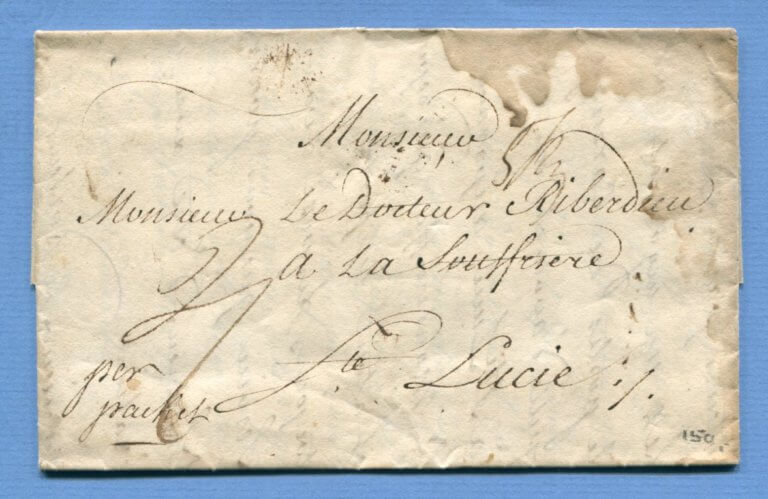 Monsieur
Monsieur Le Docteur Riberdieu
a La Souffriere
Ste Lucie ./.
per
packet
150